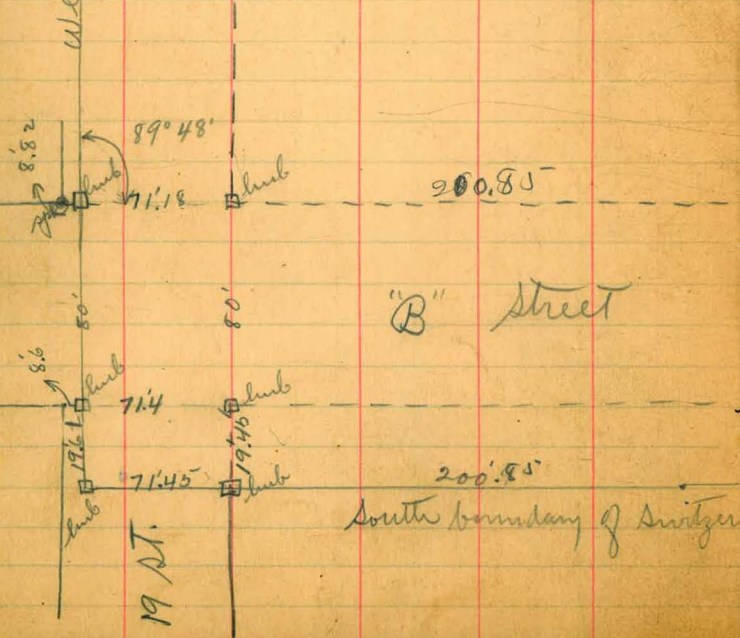 We
89° 48'
8.82
hub
71.18
hub
200.85
80'
80'
"B" Street
8.6
hub
71.4
hub
19.61
19.46
71.45
hub
200.85
hub
South boundary of Switzer
19 ST.